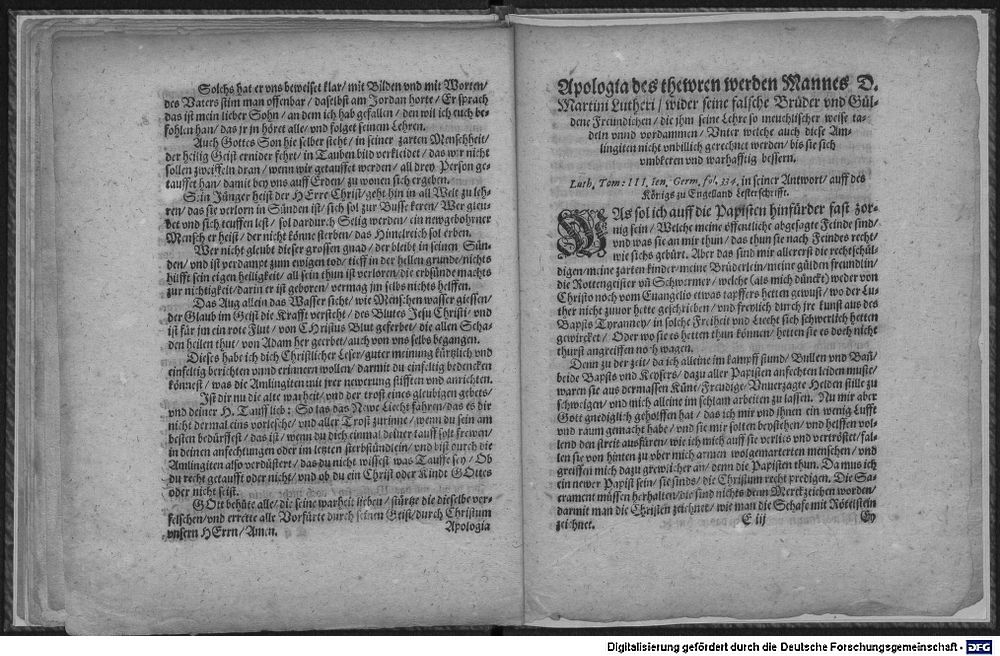 Solchs hat er vns beweiset klar/ mit Bilden vnd mit Worten/
des Vaters stim man offenbar/ daselbst am Jordan horte/ Er sprach
das ist mein lieber Sohn/ an dem ich hab gefallen/ den wil ich euch be-
fohlen han/ das jr jn höret alle/ vnd folget seinem Lehren.
Auch Gottes Son hie selber steht/ in seiner zarten Menschheit/
der heilig Geist ernider fehrt/ in Tauben bild verkleidet/ das wir nicht
sollen zweiffeln dran/ wenn wir getauffet werden/ all drey Person ge-
tauffet han/ damit bey vns auff Erden/ zu wonen sich ergeben.
Sein Jünger heist der HErre Christ/ geht hin in all Welt zu leh-
ren/ das sie verlorn in Sünden ist/ sich sol zur Busse keren/ Wer gleu-
bet vnd sich teuffen lest/ sol dardurch Selig werden/ ein newgebohrner
Mensch er heist/ der nicht könne sterben/ das Himelreich sol erben.
Wer nicht gleubt dieser grossen gnad/ der bleibt in seinen Sün-
den/ vnd ist verdampt zum ewigen tod/ tieff in der hellen grunde/ nichts
hilfft sein eigen heiligkeit/ all sein thun ist verloren/ die erbsünde machts
zur nichtigkeit/ darin er ist geboren/ vermag jm selbs nichts helffen.
Das Aug allein das Wasser sicht/ wie Menschen wasser giessen/
der Glaub im Geist die Krafft versteht/ des Blutes Jesu Christi/ vnd
ist für jm ein rote Flut/ von CHristus Blut geferbet/ die allen Scha-
den heilen thut/ von Adam her geerbet/ auch von vns selbs begangen.
Dieses habe ich dich Christlicher Leser/ guter meinung kürtzlich vnd
einfeltig berichten vnnd erinnern wollen/ darmit du einfeltig bedencken
könnest/ was die Amlingiten mit jrer newerung stifften vnd anrichten.
Ist dir nu die alte warheit/ vnd der trost eines gleubigen gebets/
vnd deiner H. Tauff lieb: So las das Newe Liecht fahren/ das es dir
nicht dermal eins vorlesche/ vnd aller Trost zurinne/ wenn du sein am
besten bedürffest/ das ist/ wenn du dich einmal deiner tauff solt frewen/
in deinen anfechtungen oder im letzten sterbstündlein/ vnd bist durch die
Amlingiten also verdüstert/ das du nicht wissest was Tauffe sey/ Ob
du recht getaufft oder nicht/ vnd ob du ein Christ oder Kindt GOttes
oder nicht seist.
GOtt behüte alle/ die seine warheit lieben/ stürtze die dieselbe ver-
felschen/ vnd errette alle Vorfürte durch seinen Geist/ durch Christum
vnsern HErrn/ Amen.
Apologia
Apologia des thewren werden Mannes D.
Martini Lutheri/ wider seine falsche Brüder vnd Gül-
dene Freundlichen/ die jhm seine Lehre so meuchlischer weise ta-
deln vnnd vordammen/ Vnter welche auch diese Am-
lingiten nicht vnbillich gerechnet werden/ bis sie sich
vmbkeren vnd warhafftig bessern.
Luth. Tom: III. Ien. Germ. fol. 334. in seiner Antwort/ auff des
Königs zu Engelland Lesterschrifft.
WAs sol ich auff die Papisten hinfürder fast zor-
nig sein/ Welche meine öffentliche abgesagte Feinde sind/
vnd was sie an mir thun/ das thun sie nach Feindes recht/
wie sichs gebürt. Aber das sind mir allererst die rechtschül-
digen/ meine zarten kinder/ meine Brüderlein/ meine gülden freundlin/
die Rottengeister vñ Schwermer/ welche (als mich dünckt) weder von
Christo noch vom Euangelio etwas tapffers hetten gewust/ wo der Lu-
ther nicht zuuor hette geschrieben/ vnd freylich durch jre kunst aus des
Bapsts Tyranney/ in solche Freiheit vnd Liecht sich schwerlich hetten
gewircket/ Oder wo sie es hetten thun können/ hetten sie es doch nicht
thurst angreiffen noch wagen.
Denn zu der zeit/ da ich alleine im kampff stund/ Bullen vnd Bañ/
beide Bapsts vnd Keysers/ dazu aller Papisten anfechten leiden muste/
waren sie aus dermassen Küne/ Freudige/ Vnuerzagte Helden stille zu
schweigen/ vnd mich alleine im schlam arbeiten zu lassen. Nu mir aber
Gott gnediglich geholffen hat/ das ich mir vnd jhnen ein wenig Lufft
vnd raum gemacht habe/ vnd sie mir solten beystehen/ vnd helffen vol-
lend den streit ausfüren/ wie ich mich auff sie verlies vnd vertröstet/ fal-
len sie von hinten zu vber mich armen wolgemarterten menschen/ vnd
greiffen mich dazu grewlicher an/ denn die Papisten thun. Da mus ich
ein newer Papist sein/ sie sinds/ die Christum recht predigen. Die Sa-
crament müssen herhalten/ die sind nichts denn Merckzeichen worden/
darmit man die Christen zeichnet/ wie man die Schafe mit Röttelstein
zeichnet.
E iij
Ey
Digitalisierung gefördert durch die Deutsche Forschungsgemeinschaft - DFG